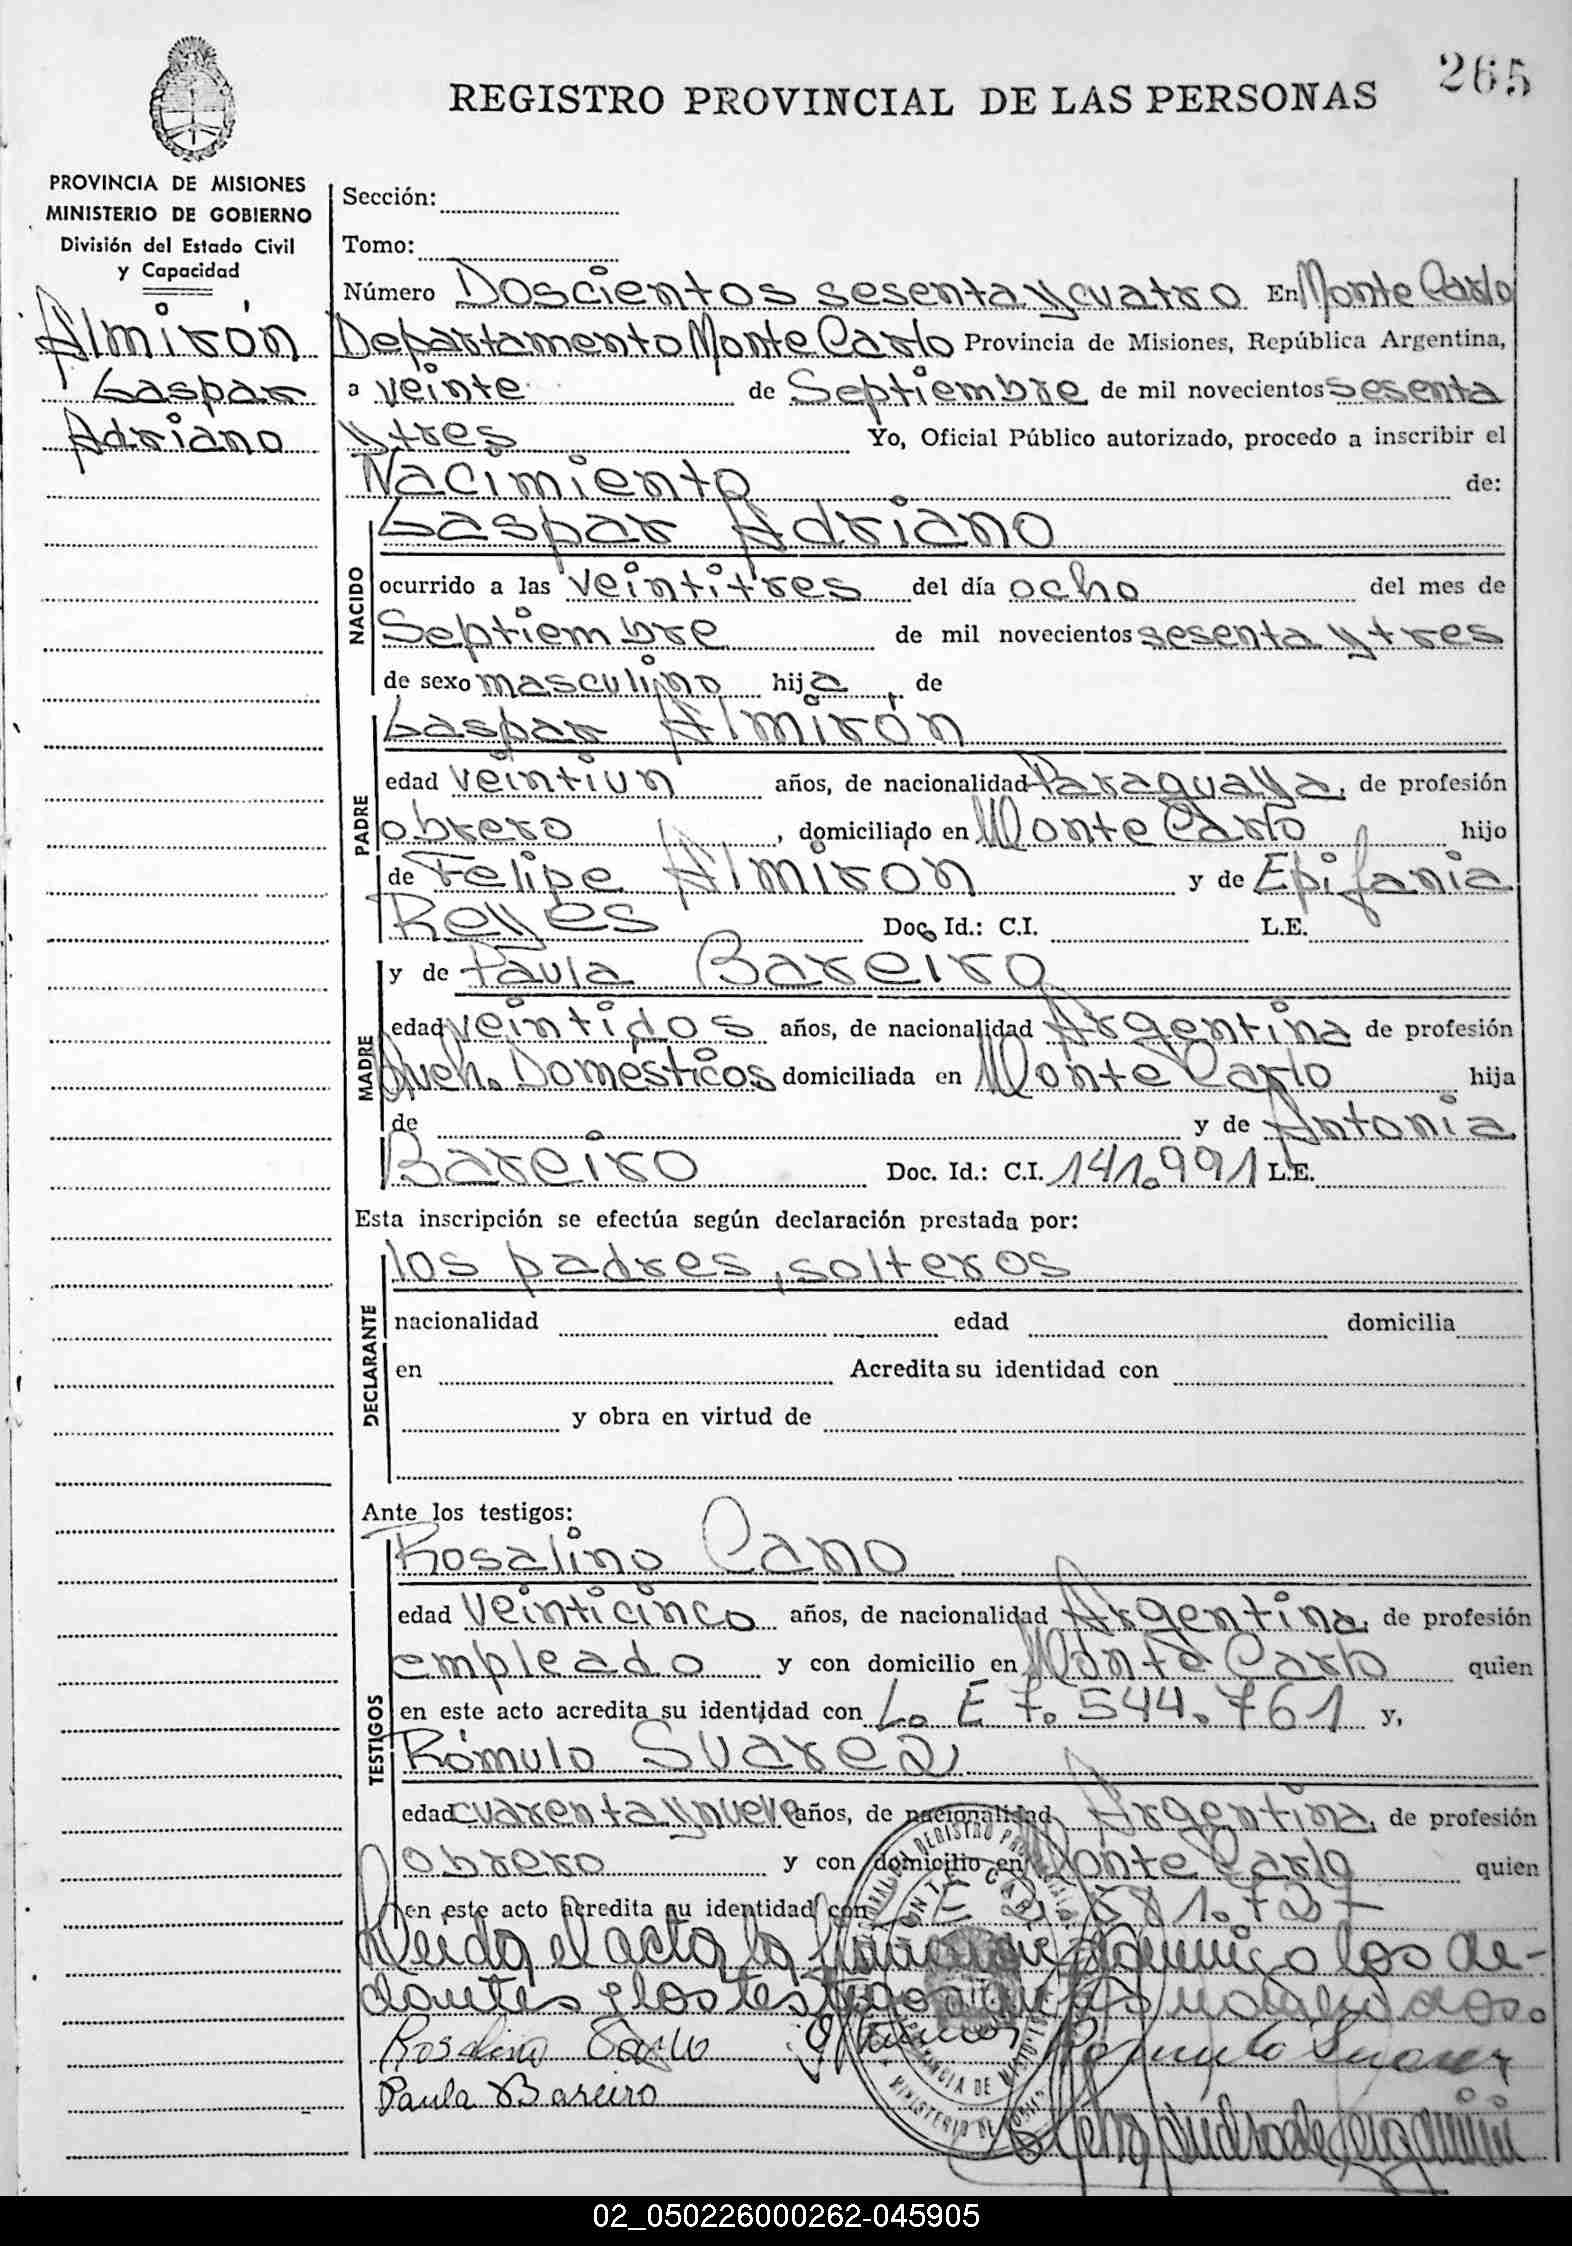 265
REGISTRO PROVINCIAL DE LAS PERSONAS
PROVINCIA DE MISIONES
MINISTERIO DE GOBIERNO
División del Estado Civil
y Capacidad
Almirón
Gaspar
Adriano
Sección:
Tomo:
Número Doscientos sesenta y cuatro En Monte Carlo
Departamento Monte Carlo Provincia de Misiones, República Argentina,
a veinte de Septiembre de mil novecientos sesenta
y tres Yo, Oficial Público autorizado, procedo a inscribir el
Nacimiento de:
NACIDO
Gaspar Adriano
ocurrido a las veintitres del día ocho del mes de
Septiembre de mil novecientos sesenta y tres
de sexo masculino hija, de
PADRE
Gaspar Almirón
edad veintiun años, de nacionalidad Paraguaya, de profesión
obrero, domiciliado en Monte Carlo hijo
de Felipe Almiron y de Epifania
Reyes Doc. Id.: C.I. L.E.
MADRE
y de Paula Bareiro
edad veintidos años, de nacionalidad Argentina de profesión
Queh. Domésticos domiciliada en Monte Carlo hija
de y de Antonia
Bareiro Doc. Id.: C.I. 141.991 L.E.
Esta inscripción se efectúa según declaración prestada por:
DECLARANTE
los padres, solteros
nacionalidad edad domicilia
en Acredita su identidad con
y obra en virtud de
Ante los testigos:
TESTIGOS
Rosalino Cano
edad veinticinco años, de nacionalidad Argentina, de profesión
empleado y con domicilio en Monte Carlo quien
en este acto acredita su identidad con L. E 7. 544. 761 y,
Rómulo Suarez
edad cuarenta y nueve años, de nacionalidad Argentina, de profesión
obrero y con domicilio en Monte Carlo quien
en este acto acredita su identidad con
Leída el acta la conmigo los de-
clarantes y los testigos nombrados.
Rosalino Cano Romulo Suarez
Paula Bareiro
MINISTERIO DE
02_050226000262-045905